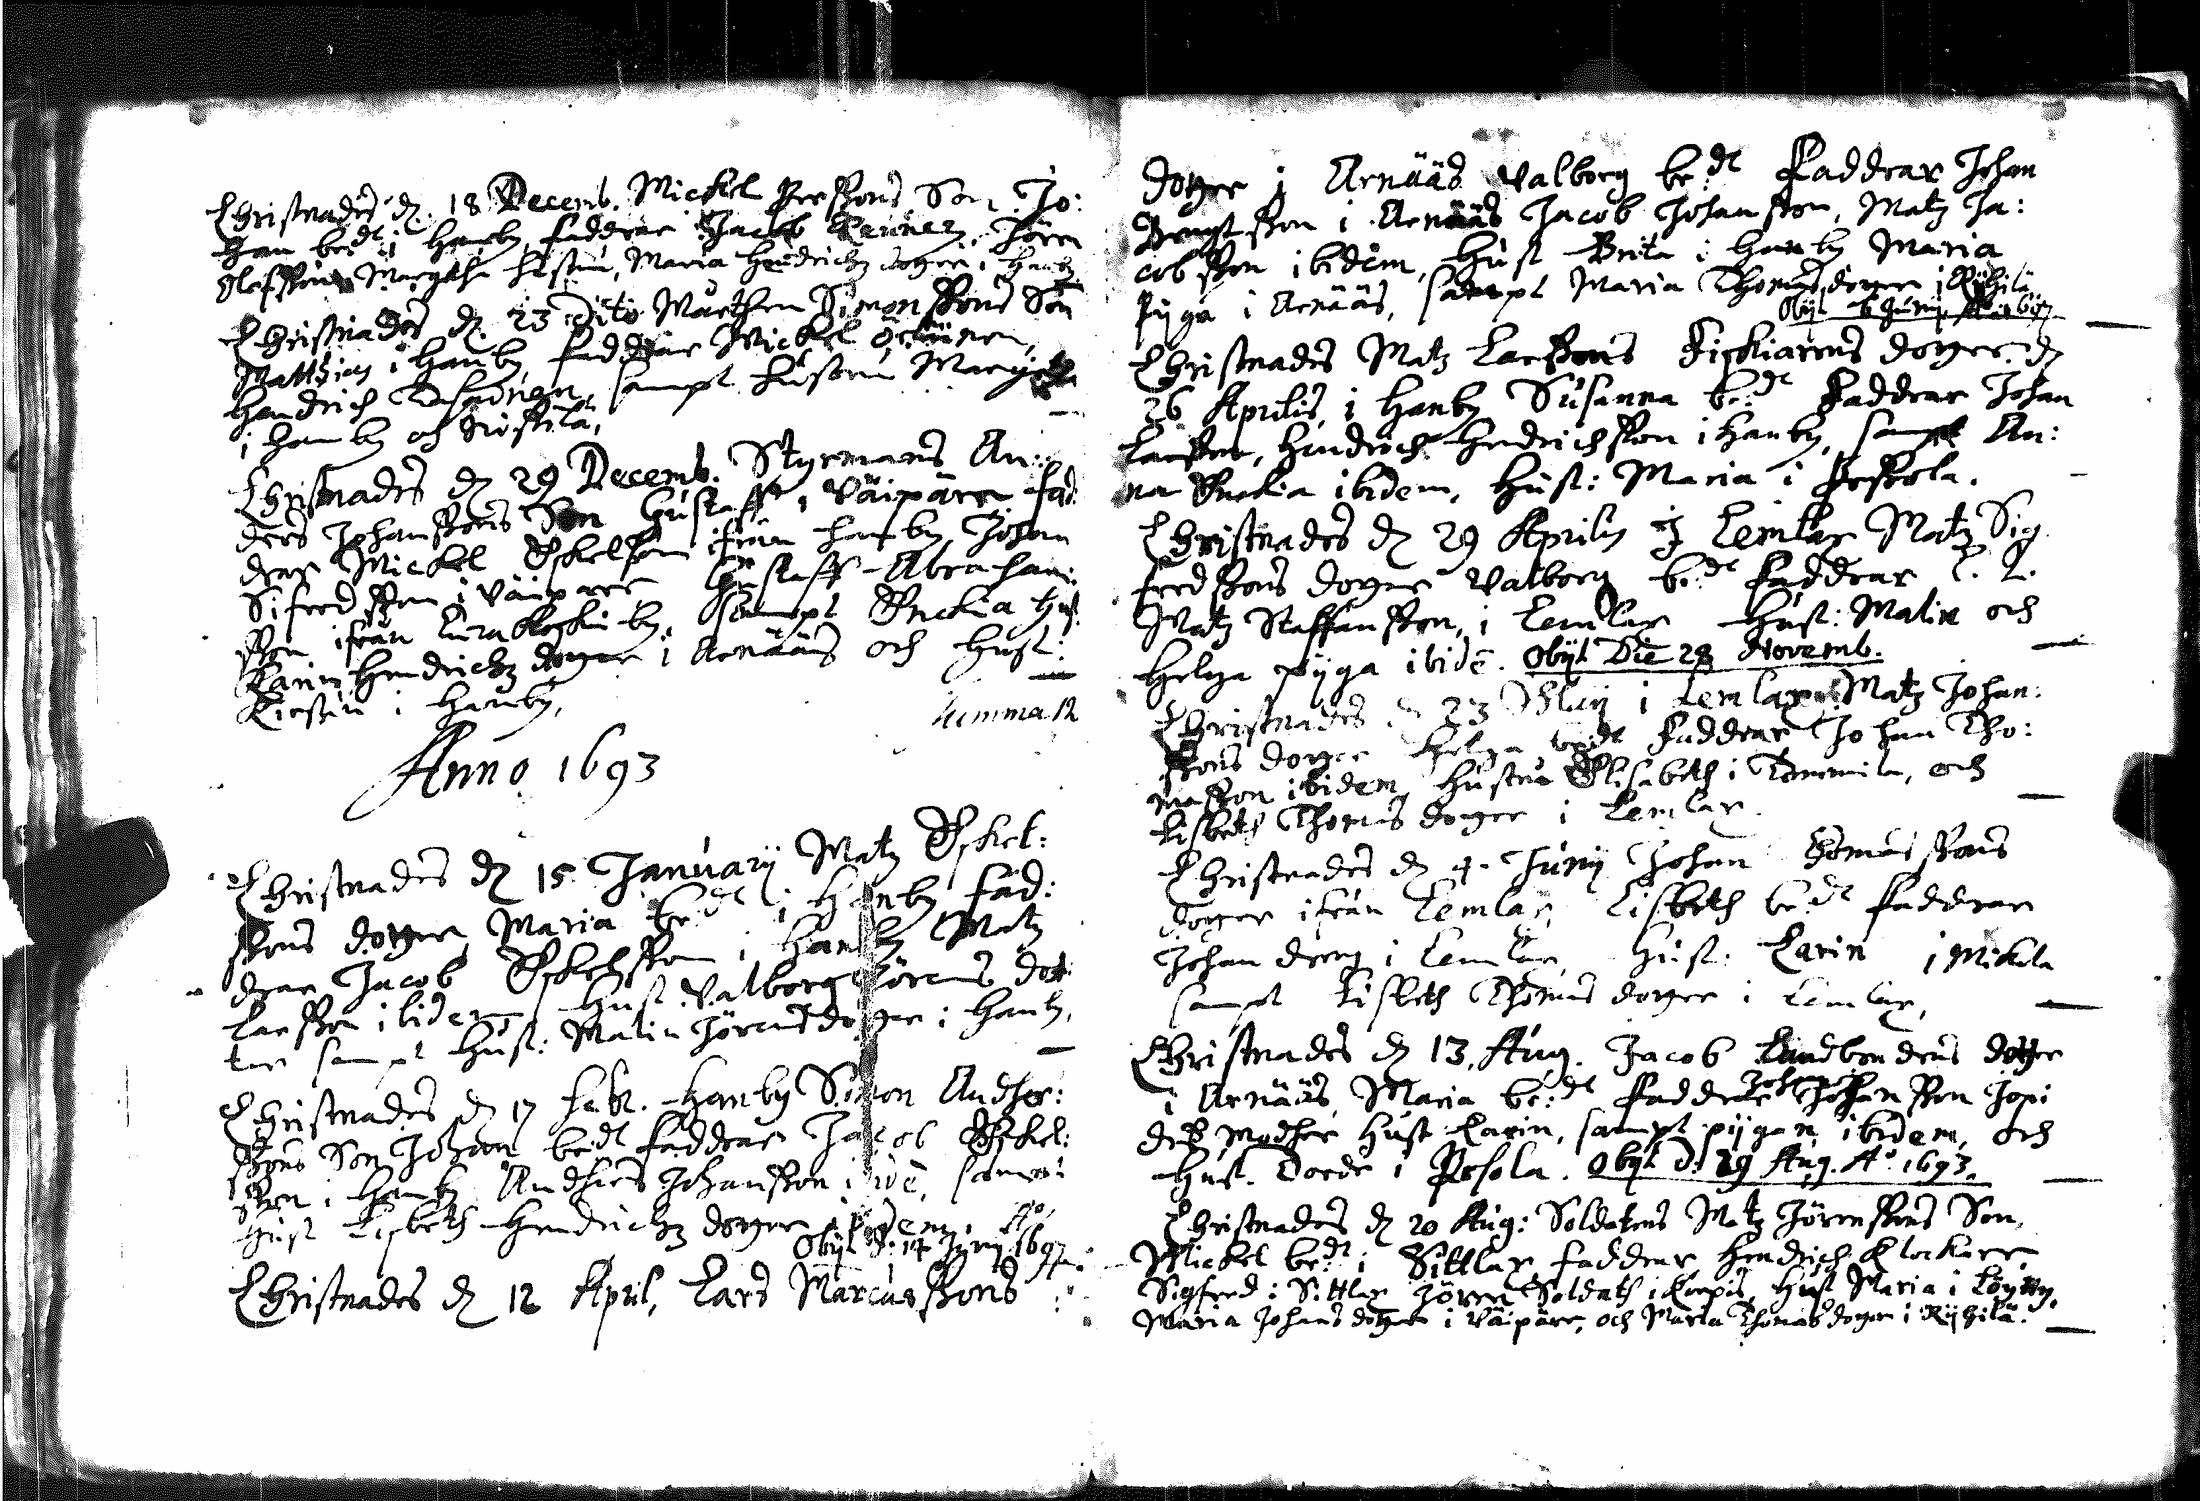 Christnades d. 18 Decemb. Mickel Perssons Son Jo:
han be:dt i Hanby, faddrar Jacob Jören
Olofsson Margetha hustru, Maria Hendrichz doger i Hanby
Christnades d. 23 dito Marthen Simonssons Son
Matthias i Hanby, faddrar Mickel
Hendrich sampt hustru Margeta
i Hanby och
Christnades d 29 Decemb. Styrmans An:
ders Johanssons Son Gustaff iVäipäre fad:
drar Mickel Eskelsson ifrån Hanby, Johan
Sifredsson i Väipäre Gustaff Abraham:
sson ifrån by, sampt Enckia Hust:
Karin Hendrichz doger i Arnääs och Hust:
Kirstin i Hanby,
Summa 12
Anno 1693
Christnades d 15 Januarij Matz Eskel:
ssons dotger Maria be:dt i Hanby fad:
drar Jacob Eskelsson i Hanby Matz
Larsson ibidem, Hust: Valborg Jörens dot:
ter sampt Hust: Malin Jörens doger i Hanby,
Christnades d 17 Febr. Hanby Simon Andher:
ssons Son Johan be:dt faddrar Jacob Eskel:
sson i Hanby Andhers Johansson ibidē, sampt
Hust Lisbeth Hendrichz doger ibidem.
Obijt d: 14 Junij Ao. 1697
Christnades d 12 April, Lars Marcussons
dotger i Arnääs Valborg be:dt Faddrar Johan
Bengtsson i Arnääs Jacob Johansson, Matz Ja:
cobsson ibidem, Hust Brita i Hanby Maria
Pijga i Arnääs, sampt Maria Thomas doger i Rijhilä
Obijt 6 Junij
Christnades Matz Larssons Fiskiarens doger d
26 Aprilis i Hanby Susanna be:dt Faddrar Johan
Larsson, Hindrich Hendrichsson i Hanby, sampt An:
na Enckia ibidem, Hust: Maria i Pessola.
Christnades d 29 Aprilis J Lemlax Matz Sig
fredssons doger Valborg be:dt Faddrar
Matz Staffansson i Lemlax Hust: Malin och
Helga pijga ibidē. Obijt Die 28 Novemb.
Christnades d 23 Maij i Lemlax, Matz Johan:
ssons doger Helga be:dt Faddrar Johan Tho:
masson ibidem, Hustru Elisabeth i Tammila, och
Lisbeth Thomas doger i Lemlax.
Christnades d 4. Junij Johan Tomas ssons
doger ifrån Lemlax, Lisbeth be:dt Faddrar
Johan dreng i Lemlax, Hust: Karin i Mikila
sampt Lisbeth Thomas doger i Lemlax,
Christnades d 13. Aug. Jacob Landbondens dotger
i Arnääs, Maria be:dt Faddrar Johan Johansson Jopi
dess Modher Hust Karin, sampt pijgan ibidem, och
Hust. Dorde i Pesola. Obijt d. 29 Aug. Ao. 1693.
Christnades d 20 Aug: Soldatens Matz Jörenssons Son,
Mickel be:dt i Sittlax faddrar, Hendrich Klockare
Sigfred i Sittlax Jören Soldath i Korpis, Hust Maria i Löytty,
Maria Johans doger i Väipäre, och Maria Thomas doger i Rijhilä.